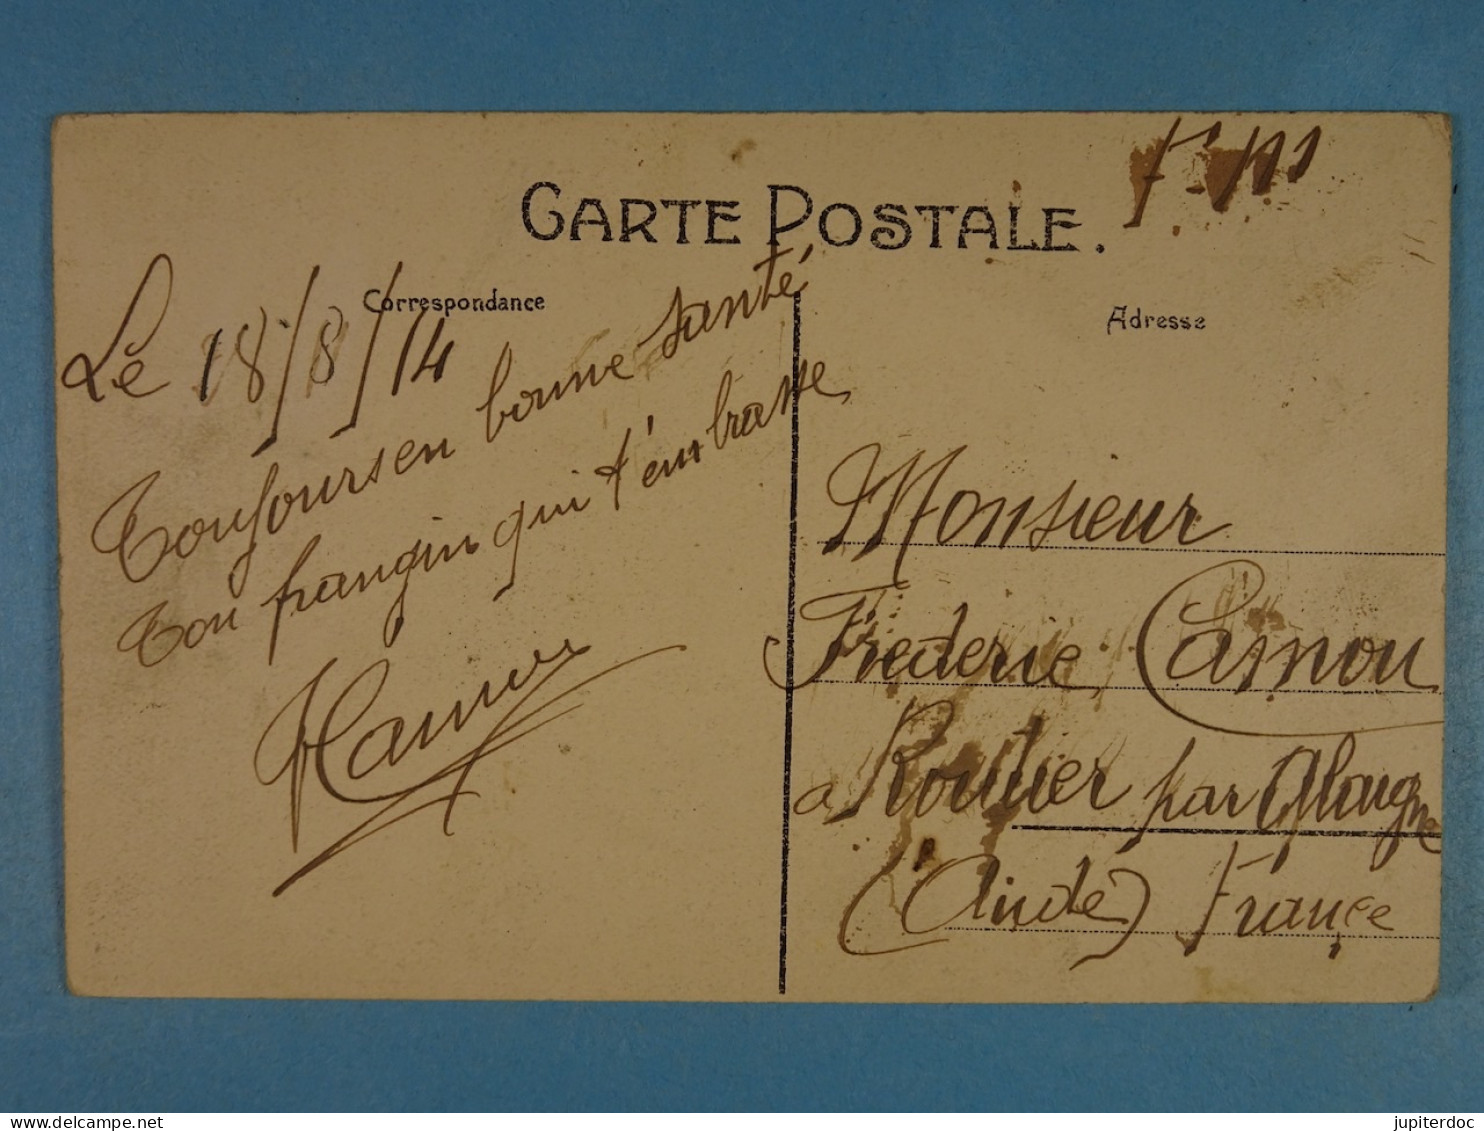 F. M
CARTE POSTALE.
Correspondance
Adresse
Le 18/8/14
Toujours en bonne santé
Ton frangin qui t'embrasse
Monsieur
Frederic Camou
a Routier par Alaigne
(Aude) France
jupiterdoc